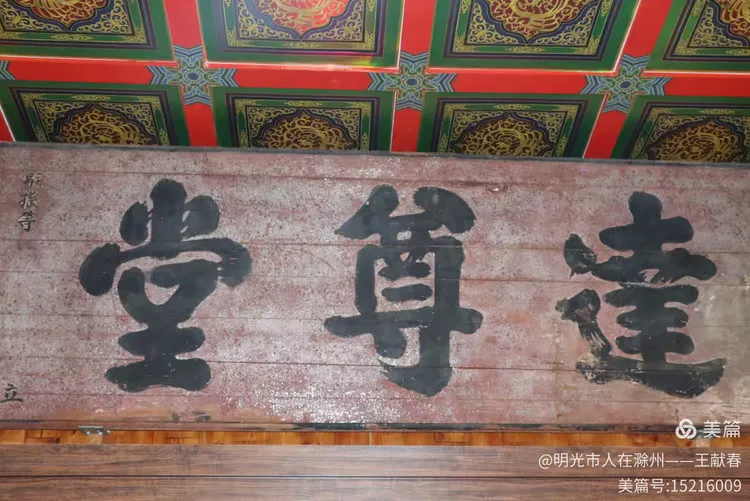 達尊堂
立
美篇
@明光市人在滁州——王献春
美篇号:15216009